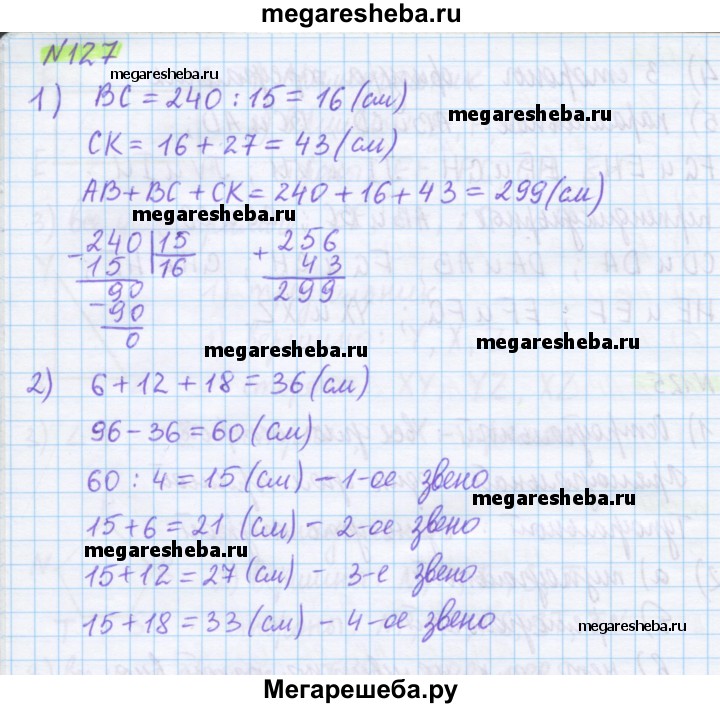 megaresheba.ru
№127
megaresheba.ru
1) BC = 240 : 15 = 16 (см)
megaresheba.ru
CK = 16 + 27 = 43 (см)
AB + BC + CK = 240 + 16 + 43 = 299 (см)
megaresheba.ru
- 240 | 15
15 | 16
- 90
90
0
+ 256
43
299
megaresheba.ru
megaresheba.ru
2) 6 + 12 + 18 = 36 (см)
96 - 36 = 60 (см)
60 : 4 = 15 (см) - 1-ое звено
megaresheba.ru
15 + 6 = 21 (см) - 2-ое звено
megaresheba.ru
15 + 12 = 27 (см) - 3-е звено
15 + 18 = 33 (см) - 4-ое звено
megaresheba.ru
Мегарешеба.ру